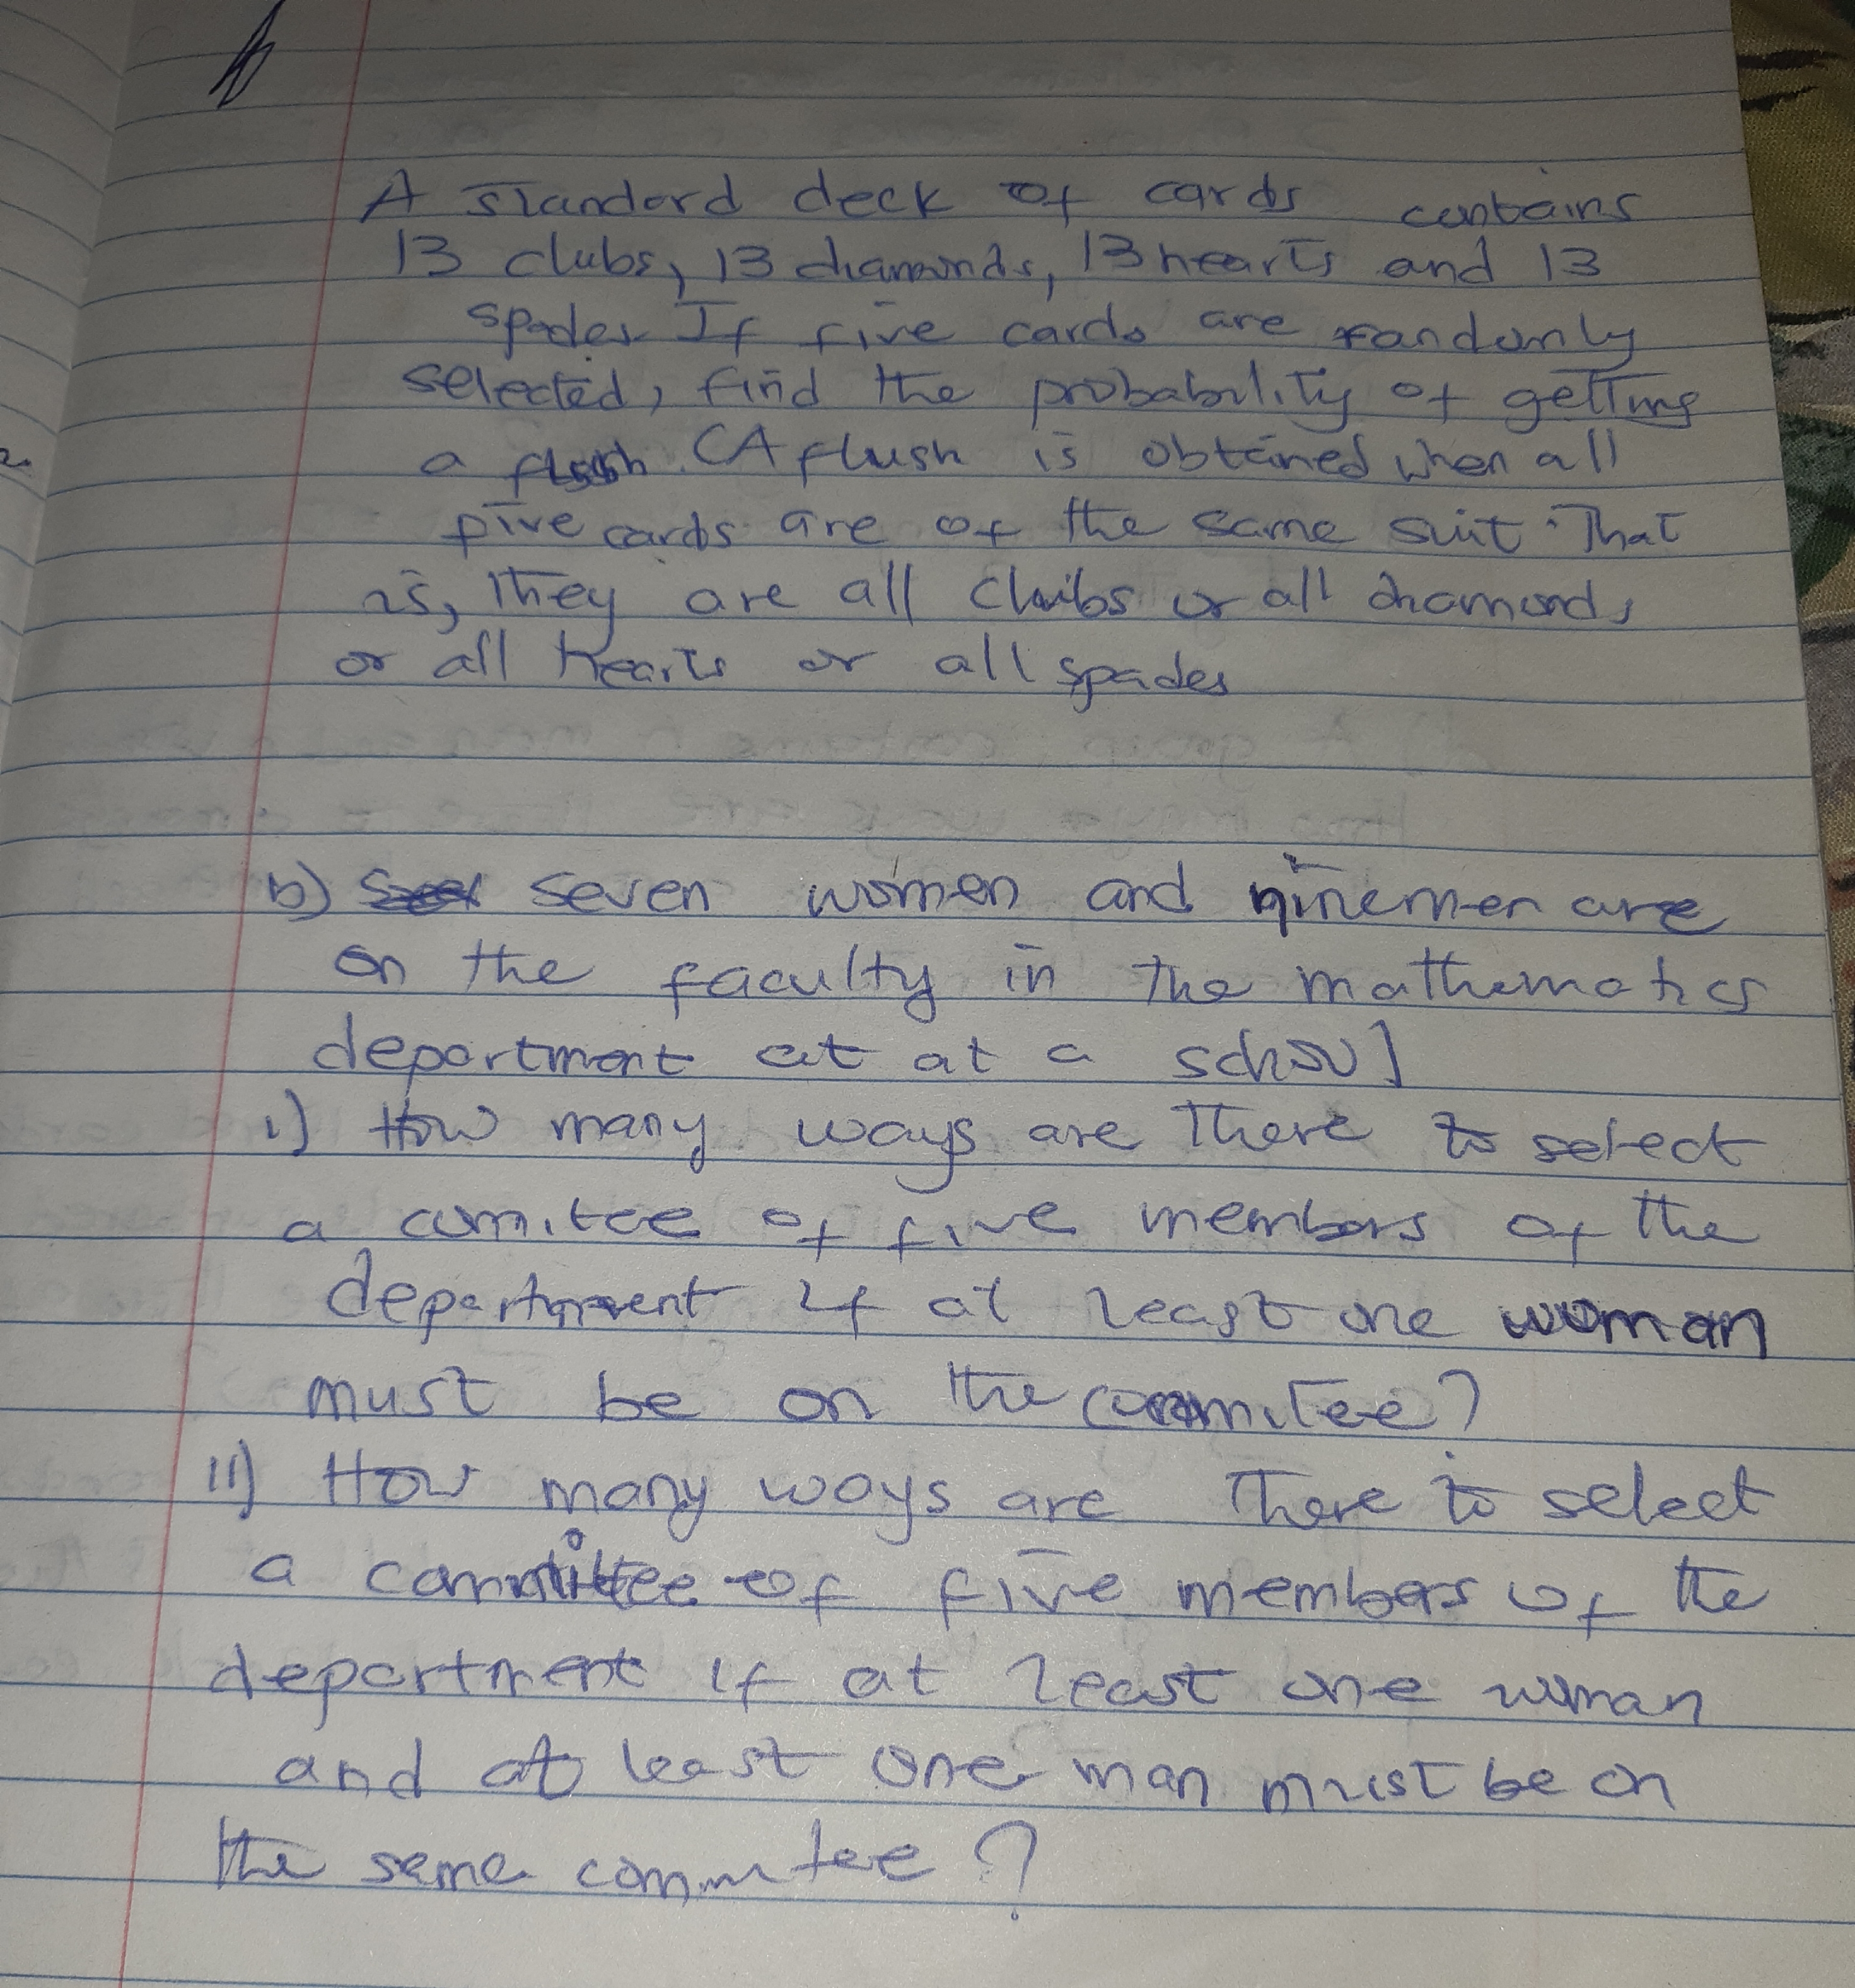 A standard deck of cards contains
13 clubs, 13 diamonds, 13 hearts and 13
spades. If five cards are randomly
selected, find the probability of getting
a flush. (A flush is obtained when all
five cards are of the same suit. That
is, they are all clubs or all diamonds
or all hearts or all spades
b) seven women and nine men are
on the faculty in the mathematics
department at at a school
i) How many ways are there to select
a comitee of five members of the
department if at least one woman
must be on the commitee?
ii) How many ways are there to select
a committee of five members of the
department if at least one woman
and at least one man must be on
the same commitee?